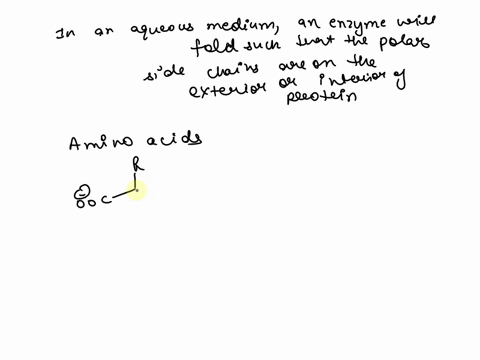 In an aqueous medium, an enzyme will
fold such that the polar
side chains are on the
exterior or interior of
protein
Amino acids
R
⊖OOC